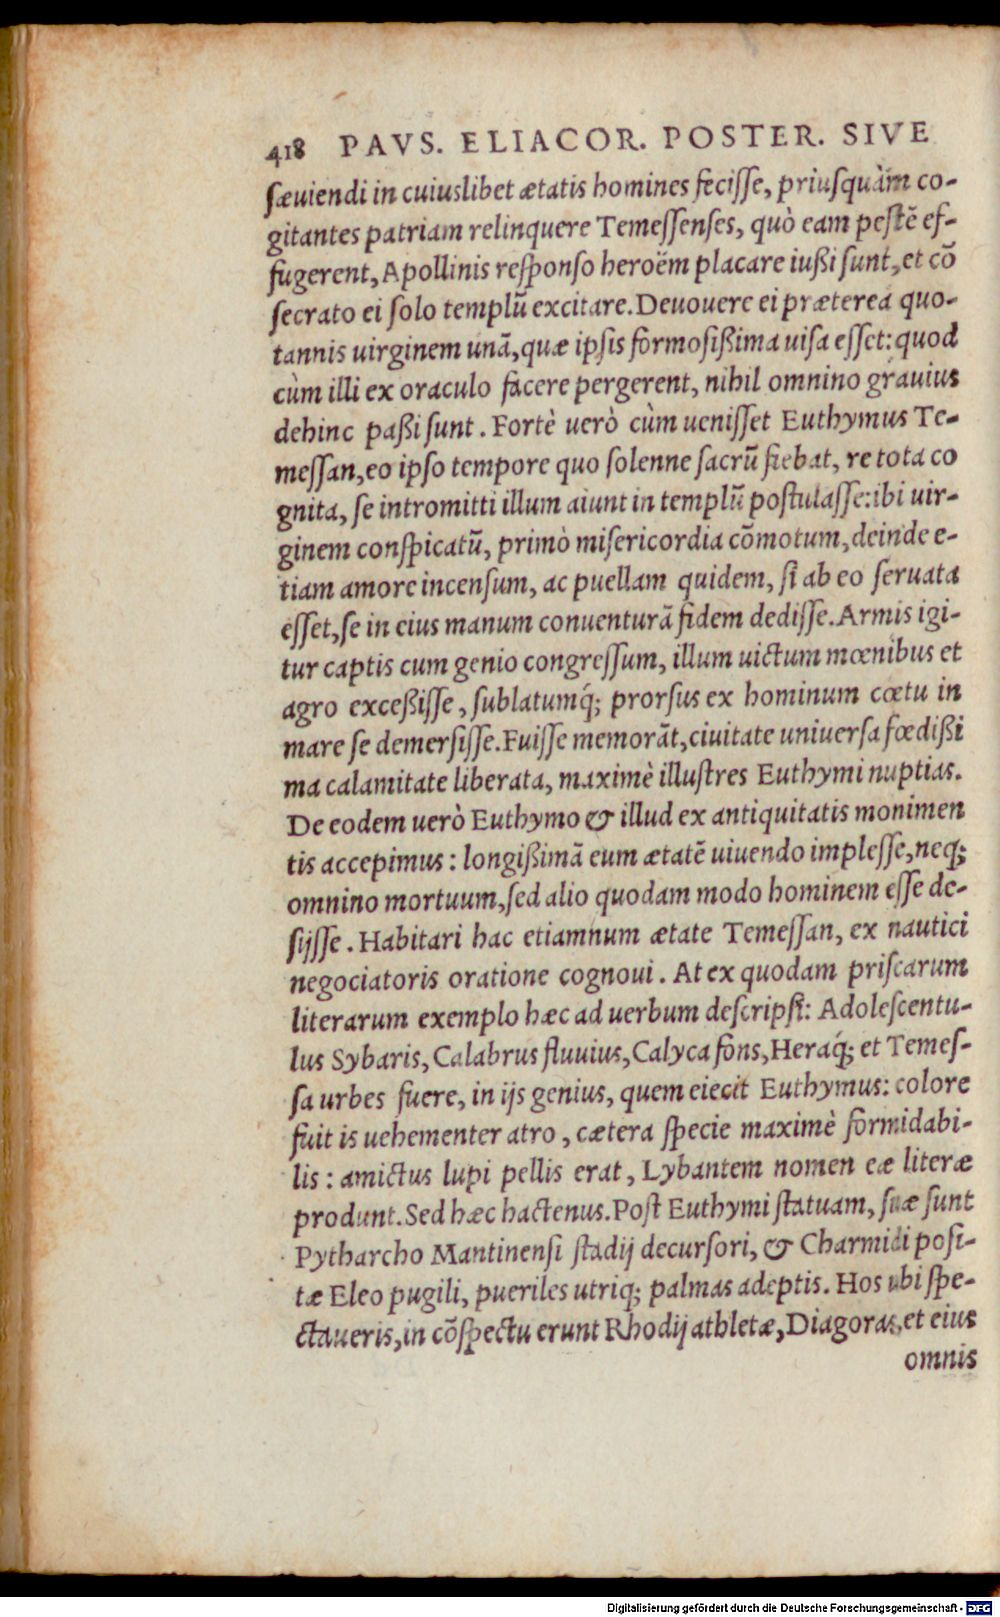 418 PAVS. ELIACOR. POSTER. SIVE
sæuiendi in cuiuslibet ætatis homines fecisse, priusquàm co-
gitantes patriam relinquere Temessenses, quò eam pestẽ ef-
fugerent, Apollinis responso heroëm placare iußi sunt, et cõ
secrato ei solo templũ excitare. Deuouere ei præterea quo-
tannis uirginem unã, quæ ipsis formosißima uisa esset: quod
cùm illi ex oraculo facere pergerent, nihil omnino grauius
dehinc paßi sunt. Fortè uerò cùm uenisset Euthymus Te-
messan, eo ipso tempore quo solenne sacrũ fiebat, re tota co
gnita, se intromitti illum aiunt in templũ postulasse: ibi uir-
ginem conspicatũ, primò misericordia cõmotum, deinde e-
tiam amore incensum, ac puellam quidem, si ab eo seruata
esset, se in eius manum conuenturã fidem dedisse. Armis igi-
tur captis cum genio congressum, illum uictum mœnibus et
agro exceßisse, sublatumq́; prorsus ex hominum cœtu in
mare se demersisse. Fuisse memorãt, ciuitate uniuersa fœdißi
ma calamitate liberata, maximè illustres Euthymi nuptias.
De eodem uerò Euthymo & illud ex antiquitatis monimen
tis accepimus: longißimã eum ætatẽ uiuendo implesse, neq;
omnino mortuum, sed alio quodam modo hominem esse de-
sijsse. Habitari hac etiamnum ætate Temessan, ex nautici
negociatoris oratione cognoui. At ex quodam priscarum
literarum exemplo hæc ad uerbum descripsi: Adolescentu-
lus Sybaris, Calabrus fluuius, Calyca fons, Heraq́; et Temes-
sa urbes fuere, in ijs genius, quem eiecit Euthymus: colore
fuit is uehementer atro, cætera specie maximè formidabi-
lis: amictus lupi pellis erat, Lybantem nomen eæ literæ
produnt. Sed hæc hactenus. Post Euthymi statuam, suæ sunt
Pytharcho Mantinensi stadij decursori, & Charmidi posi-
tæ Eleo pugili, pueriles utriq; palmas adeptis. Hos ubi spe-
ctaueris, in cõspectu erunt Rhodij athletæ, Diagoras, et eius
omnis
Digitalisierung gefördert durch die Deutsche Forschungsgemeinschaft - DFG